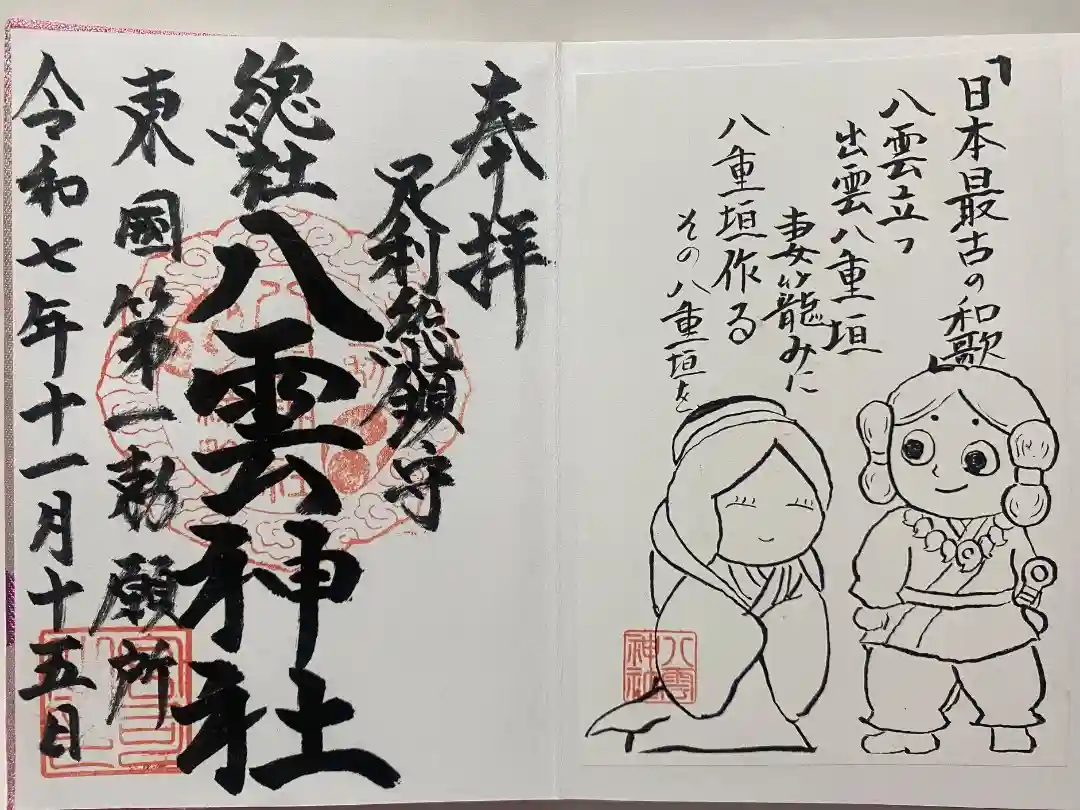 「日本最古の和歌」
八雲立つ
出雲八重垣
妻籠みに
八重垣作る
その八重垣を
八雲
神社
奉拝
足利総鎮守
総社
八雲神社
東國第一勅願所
令和七年十一月十五日